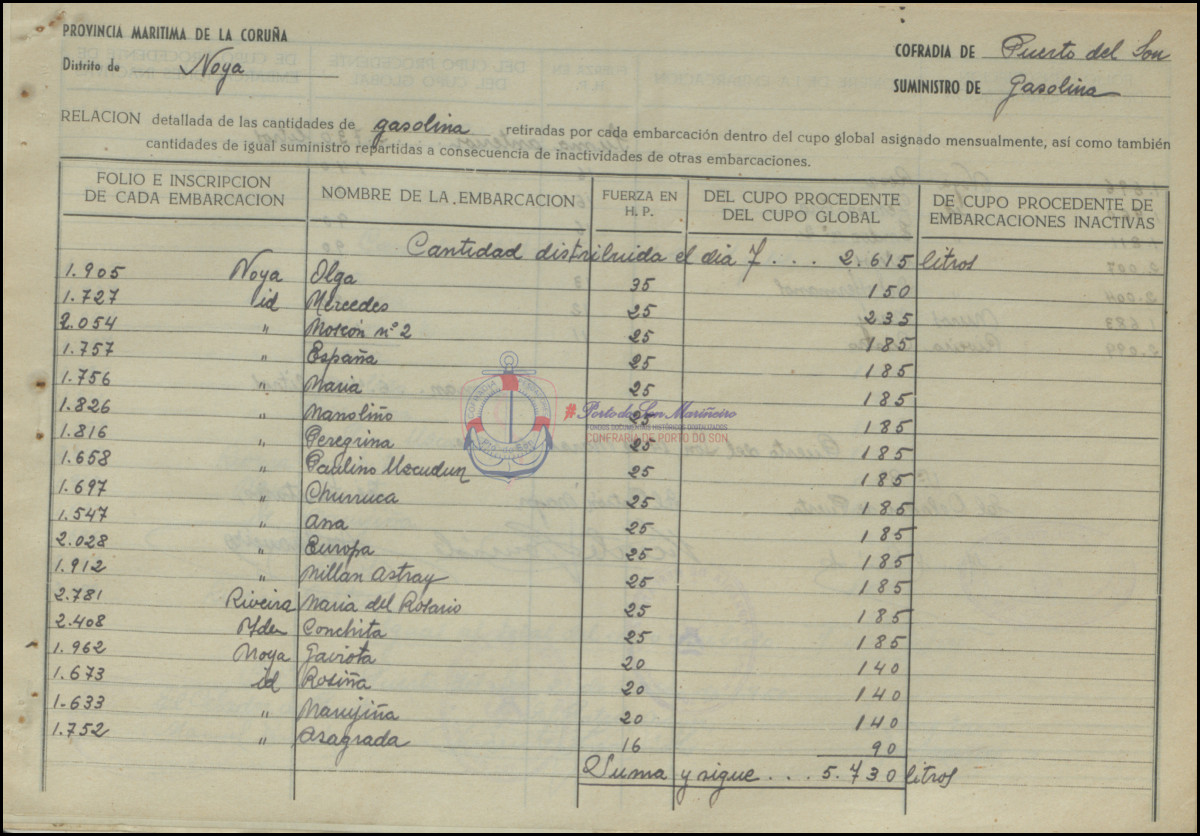 PROVINCIA MARITIMA DE LA CORUÑA
Distrito de Noya
COFRADIA DE Puerto del Son
SUMINISTRO DE Gasolina
RELACION detallada de las cantidades de gasolina retiradas por cada embarcación dentro del cupo global asignado mensualmente, así como también
cantidades de igual suministro repartidas a consecuencia de inactividades de otras embarcaciones.
FOLIO E INSCRIPCION DE CADA EMBARCACION NOMBRE DE LA EMBARCACION FUERZA EN H. P. DEL CUPO PROCEDENTE DEL CUPO GLOBAL DE CUPO PROCEDENTE DE EMBARCACIONES INACTIVAS
Cantidad distribuida el dia 7 . . . 2.615 litros
1.905 Noya Olga 35 150
1.727 id Mercedes 25 235
2.054 " Morcón nº 2 25 185
1.757 " España 25 185
1.756 " Maria 25 185
1.826 " Manoliño 25 185
1.816 " Peregrina 25 185
1.658 " Paulino Uzcudun 25 185
1.697 " Churruca 25 185
1.547 " Ana 25 185
2.028 " Europa 25 185
1.912 " Millan Astray 25 185
2.781 Riveira Maria del Rosario 25 185
2.408 Yden Conchita 25 185
1.962 Noya Gaviota 20 140
1.673 id Rosiña 20 140
1.633 " Marujiña 20 140
1.752 " Asagrada 16 90
Suma y sigue . . . 5.730 litros
#Porto do Son Mariñeiro
FONDOS DOCUMENTOS HISTÓRICOS DIGITALIZADOS
CONFRARÍA DE PORTO DO SON